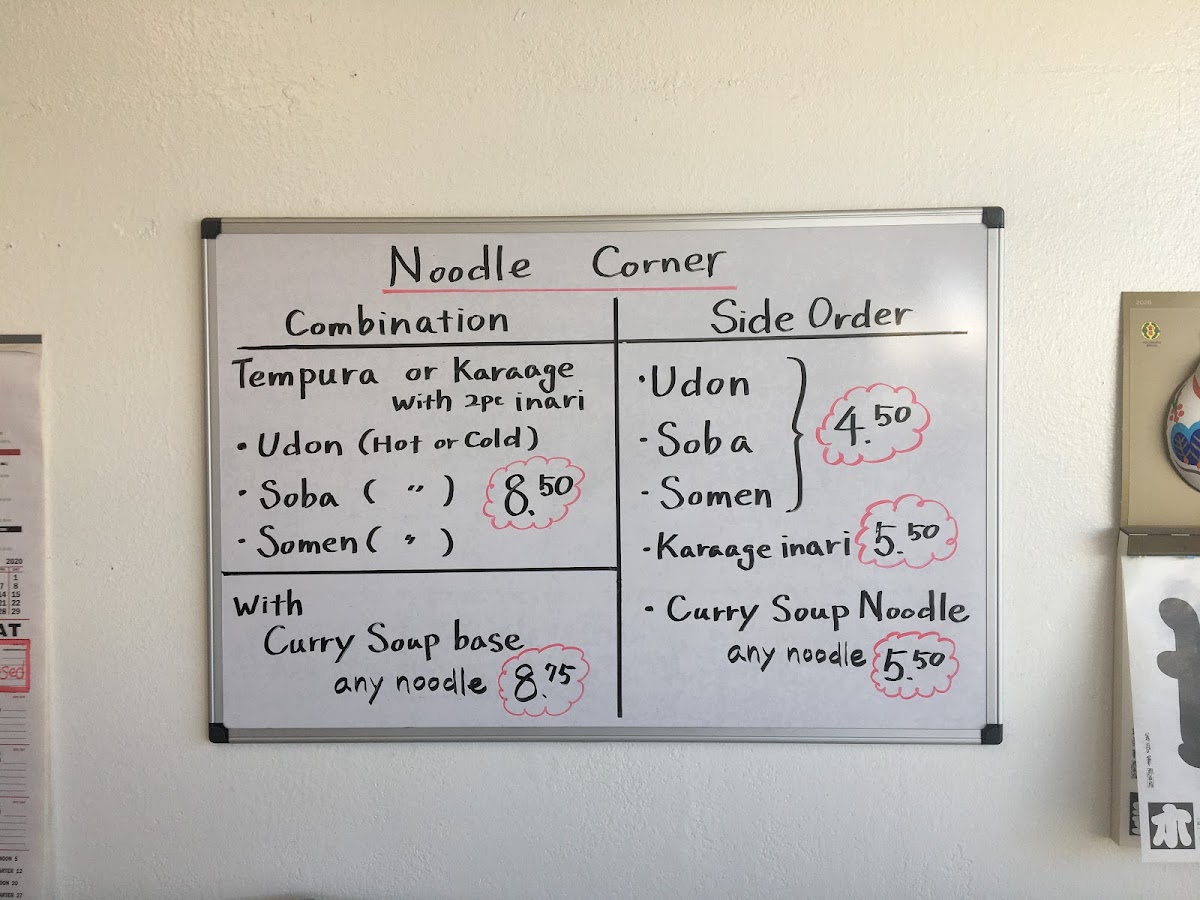 Noodle Corner
Combination
Tempura or Karaage
with 2pc inari
• Udon (Hot or Cold)
• Soba ( " )
• Somen ( " )
8.50
With
Curry Soup base
any noodle 8.75
Side Order
• Udon
• Soba
• Somen
4.50
• Karaage inari 5.50
• Curry Soup Noodle
any noodle 5.50
2020
1
7 8
14 15
21 22
28 29
2020